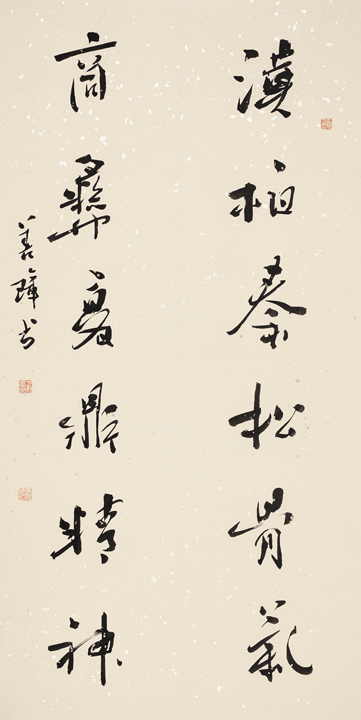 漢柏秦松骨氣
商彝夏鼎精神
善璋書